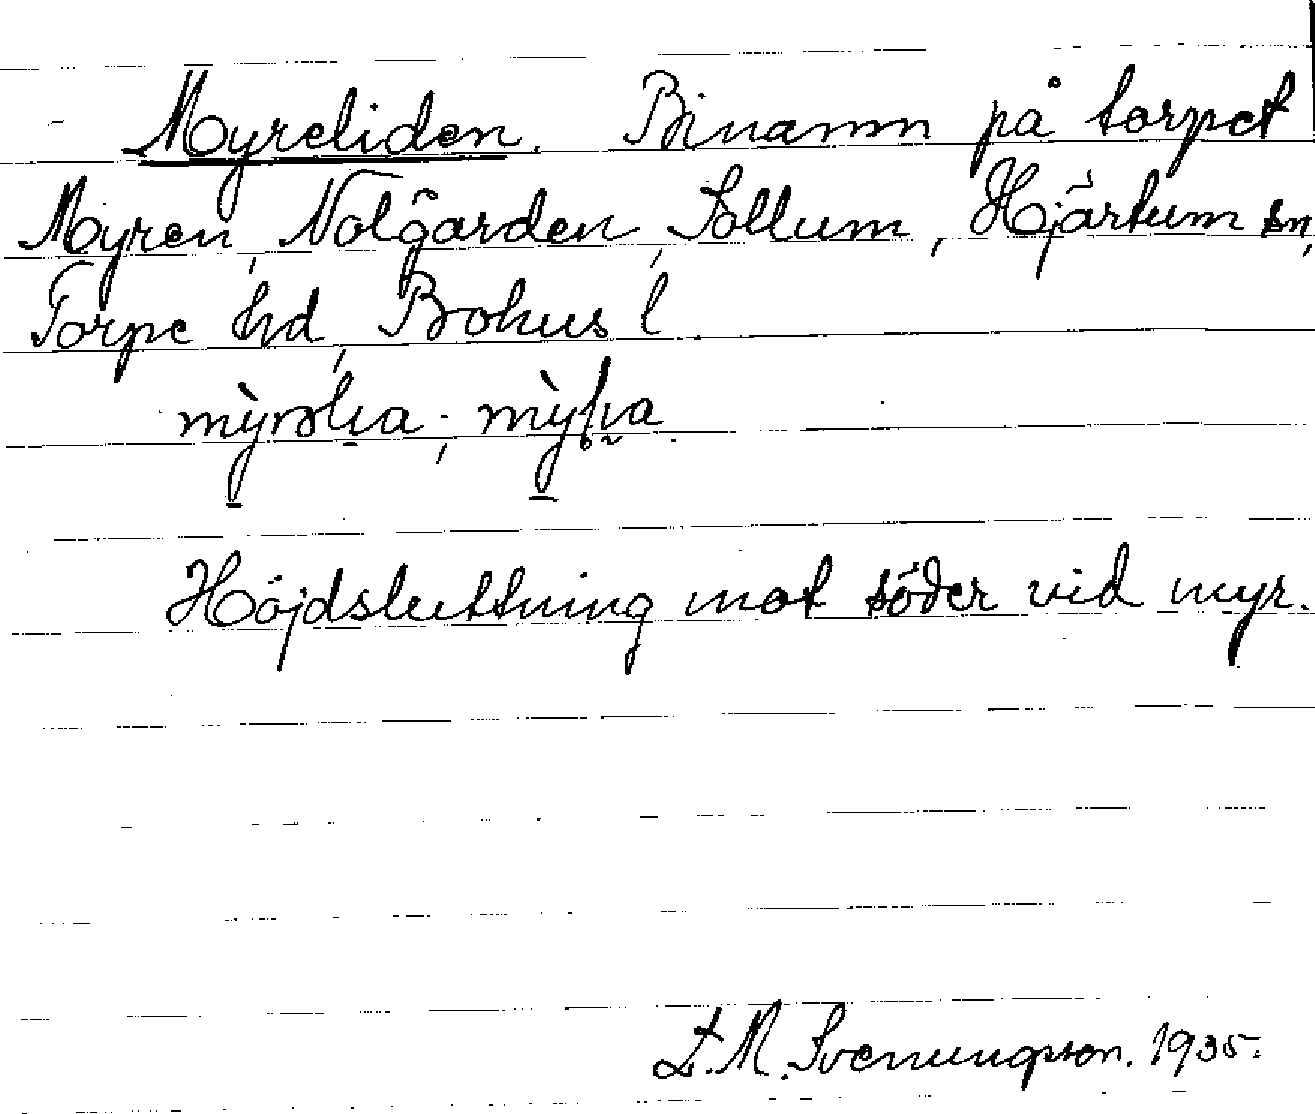 Myreliden. Binamn på torpet
Myren, Nolgården, Sollum, Hjärtum sn,
Torpe hd, Bohus l
Höjdsluttning mot söder vid myr.
L. M. Svenungsson. 1935.